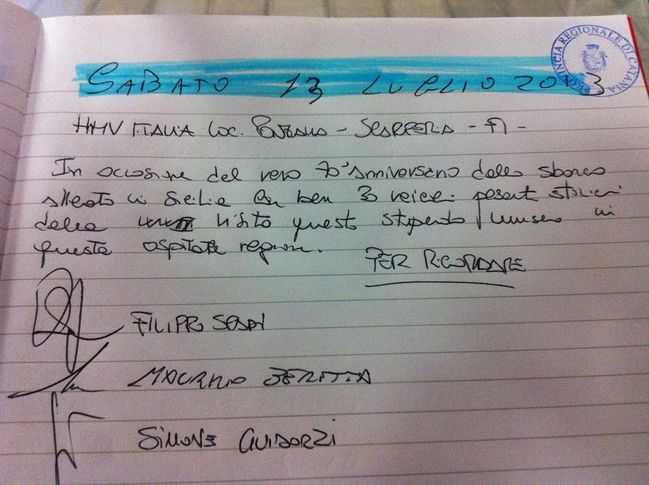 PROVINCIA REGIONALE DI CATANIA
SABATO 13 LUGLIO 2013
HMV ITALIA LOC. - SCARPERIA - FI -
In occasione del vero 70° anniversario dello sbarco
alleato in Sicilia con ben 3 veicoli pesanti storici
della visito questo stupendo museo in
questa ospitale regione. PER RICORDARE
FILIPPO
MAURIZIO
SIMONE GUIDORZI